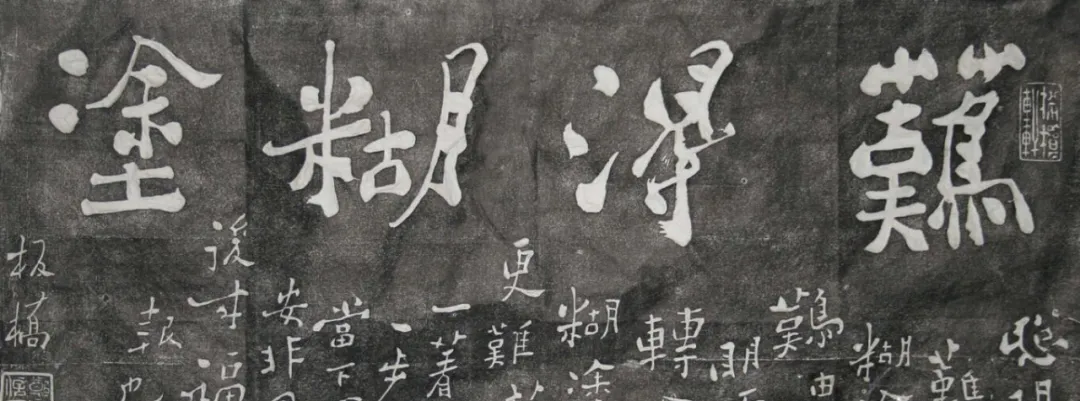 難得糊塗
聰明
難
糊塗
難由
明而
轉
糊塗
更難放
一著
一步
當下
安非
後來福
報也
板橋